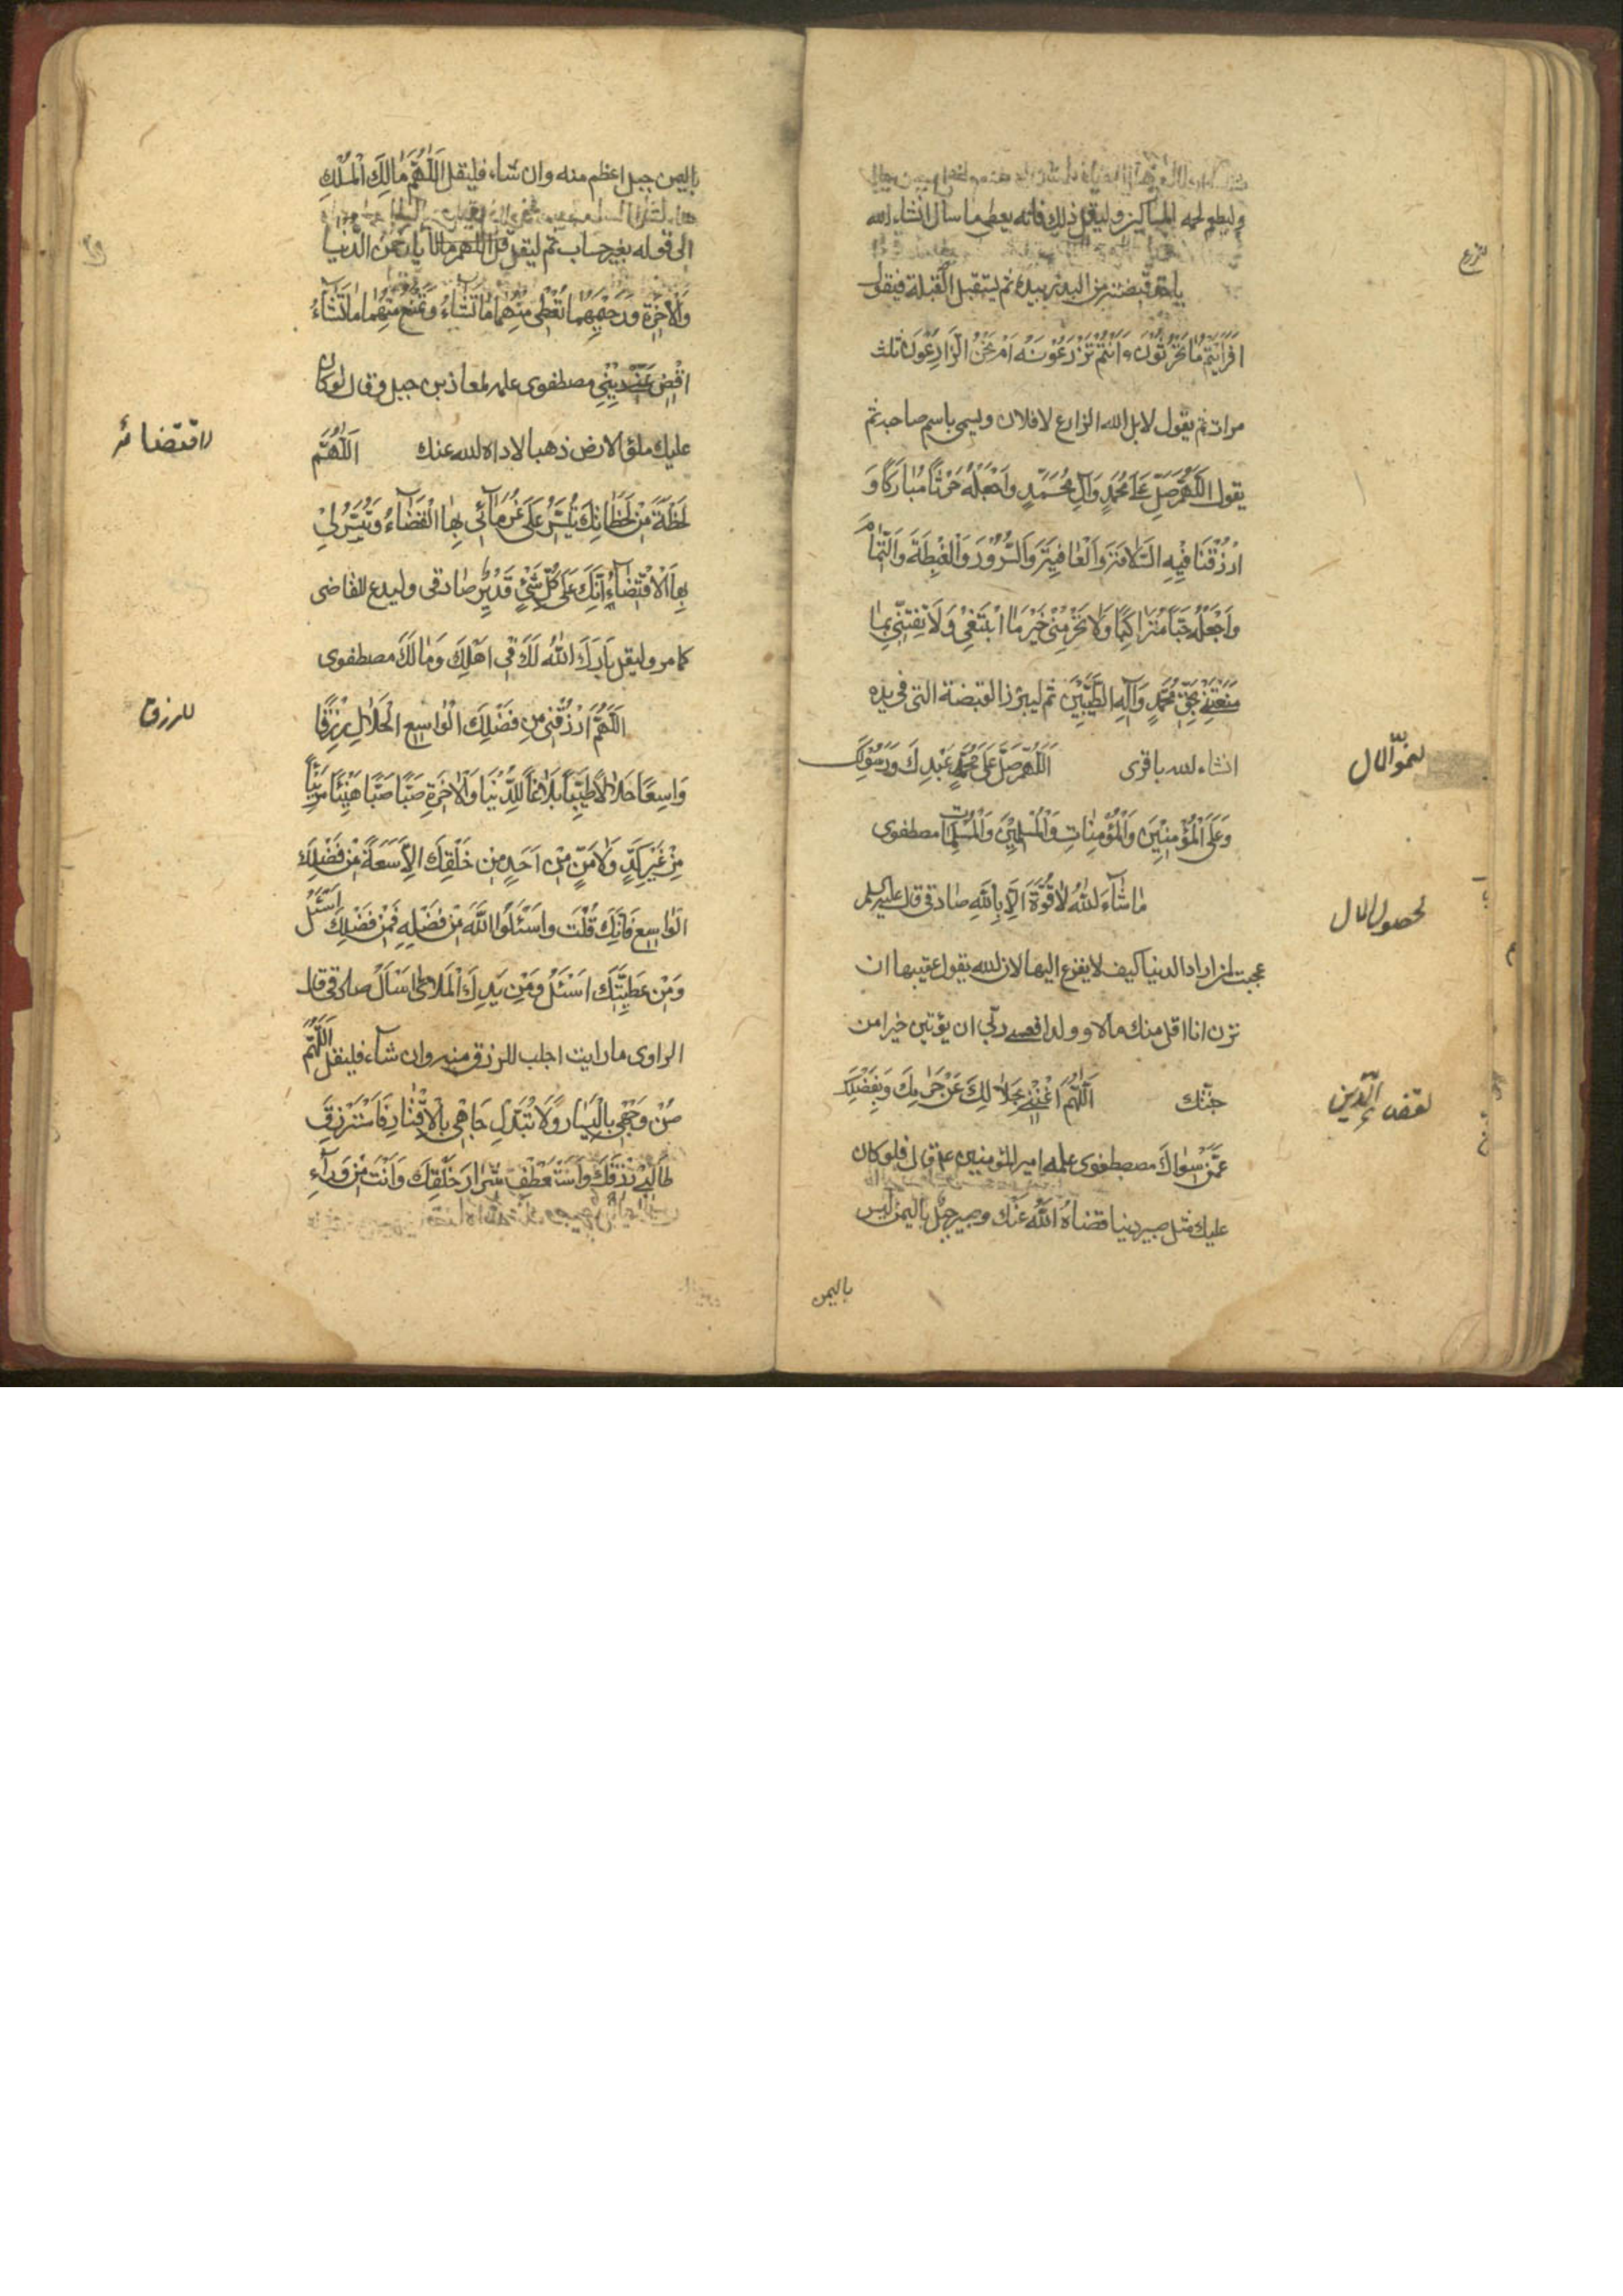 وليطعم لحمه المساكين وليقل ذلك فانه يعطى ما سال انشاء الله
للزرع
ياخذ قبضة من البذر بيده ثم يستقبل القبلة فيقول
اَفَرَاَيْتُمْ مَا تَحْرُثُونَ ءَاَنْتُمْ تَزْرَعُونَهُ اَمْ نَحْنُ الزَّارِعُونَ ثلث
مرات ثم يقول لا بل الله الزارع لا فلان ويسمى باسم صاحبه ثم
يقول اَللّهُمَّ صَلِّ عَلى مُحَمَّدٍ وَآلِ مُحَمَّدٍ وَاجْعَلْهُ حَرْثًا مُبَارَكًا وَ
ارْزُقْنَا فِيْهِ السَّلَامَةَ وَالْعَافِيَةَ وَالسُّرُوْرَ وَالْغِبْطَةَ وَالتَّمَامَ
وَاجْعَلْهُ حَبًّا مُتَرَاكِبًا وَلَا تَحْرِمْنِيْ خَيْرَ مَا اَبْتَغِيْ وَلَا تَفْتِنِّيْ بِمَا
مَتَّعْتَنِيْ بِحَقِّ مُحَمَّدٍ وَآلِهِ الطَّيِّبِيْنَ ثم ليبذر القبضة التى فى يده
انشاء لله باقرى اَللّهُمَّ صَلِّ عَلَى مُحَمَّدٍ عَبْدِكَ وَرَسُوْلِكَ
لنموّ المال
وَعَلَى الْمُؤْمِنِيْنَ وَالْمُؤْمِنَاتِ وَالْمُسْلِمِيْنَ وَالْمُسْلِمَاتِ مصطفوى
مَا شَاءَ اللهُ لَا قُوَّةَ اِلَّا بِاللهِ صادقى قال عليه السلم
لحصول المال
عجبت لمن اراد الدنيا كيف لا يفزع اليها لان لله يقول عقيبها ان
ترن انا اقل منك مالا وولدا فعسى ربّى ان يؤتين خيرا من
جنّتك اَللّهُمَّ اَغْنِنِيْ بِحَلَالِكَ عَنْ حَرَامِكَ وَبِفَضْلِكَ
لقضاء الدّين
عَمَّنْ سِوَاكَ مصطفوى علمه امير المؤمنين ع م قال فلو كان
عليك مثل صبير دينا قضاهُ اللهُ عَنْكَ وصبير جبل باليمن ليس
باليمن
باليمن جبل اعظم منه وان شاء فليقل اَللّهُمَّ مَالِكَ الْمُلْكِ
الى قوله بغير حساب ثم ليقل يا رَحْمنَ الدُّنْيَا
وَالْاخِرَةِ وَرَحِيْمَهُمَا تُعْطِيْ مِنْهُمَا مَا تَشَاءُ وَتَمْنَعُ مِنْهُمَا مَا تَشَاءُ
اِقْضِ عَنِّيْ دَيْنِيْ مصطفوى علمه لمعاذ بن جبل وقال لو كان
عليك ملؤ الارض ذهبا لاداه لله عنك اَللّهُمَّ
لاقتضائه
لَحْظَةً مِنْ لَحَظَاتِكَ تُيَسِّرُ عَلَى غُرَمَائِيْ بِهَا الْقَضَاءَ وَتُيَسِّرُ لِيْ
بِهَا الْاِقْتِضَاءَ اِنَّكَ عَلَى كُلِّ شَيْءٍ قَدِيْرٌ صادقى وليدع للقاضى
كما مر وليقل بَارَكَ اللهُ لَكَ فِيْ اَهْلِكَ وَمَالَكَ مصطفوى
اَللّهُمَّ ارْزُقْنِيْ مِنْ فَضْلِكَ الْوَاسِعِ الْحَلَالِ رِزْقًا
للرزق
وَاسِعًا حَلَالًا طَيِّبًا بَلَاغًا لِلدُّنْيَا وَالْاخِرَةِ صَبًّا صَبًّا هَنِيْئًا مَرِيْئًا
مِنْ غَيْرِ كَدٍّ وَلَا مَنٍّ مِنْ اَحَدٍ مِنْ خَلْقِكَ اِلَّا سَعَةً مِنْ فَضْلِكَ
الْوَاسِعِ فَاِنَّكَ قُلْتَ وَاسْئَلُوا اللهَ مِنْ فَضْلِهِ فَمِنْ فَضْلِكَ اَسْئَلُ
وَمِنْ عَطِيَّتِكَ اَسْئَلُ وَمِنْ يَدِكَ الْمَلْاى اَسْاَلُ صادقى قال
الراوى ما رايت اجلب للرزق منه وان شاء فليقل اَللّهُمَّ
صُنْ وَجْهِيْ بِالْيَسَارِ وَلَا تُبَدِّلْ جَاهِيْ بِالْاِقْتَارِ فَاَسْتَرْزِقَ
طَالِبِيْ رِزْقِكَ وَاَسْتَعْطِفَ شِرَارَ خَلْقِكَ وَاَنْتَ مِنْ وَرَاءِ